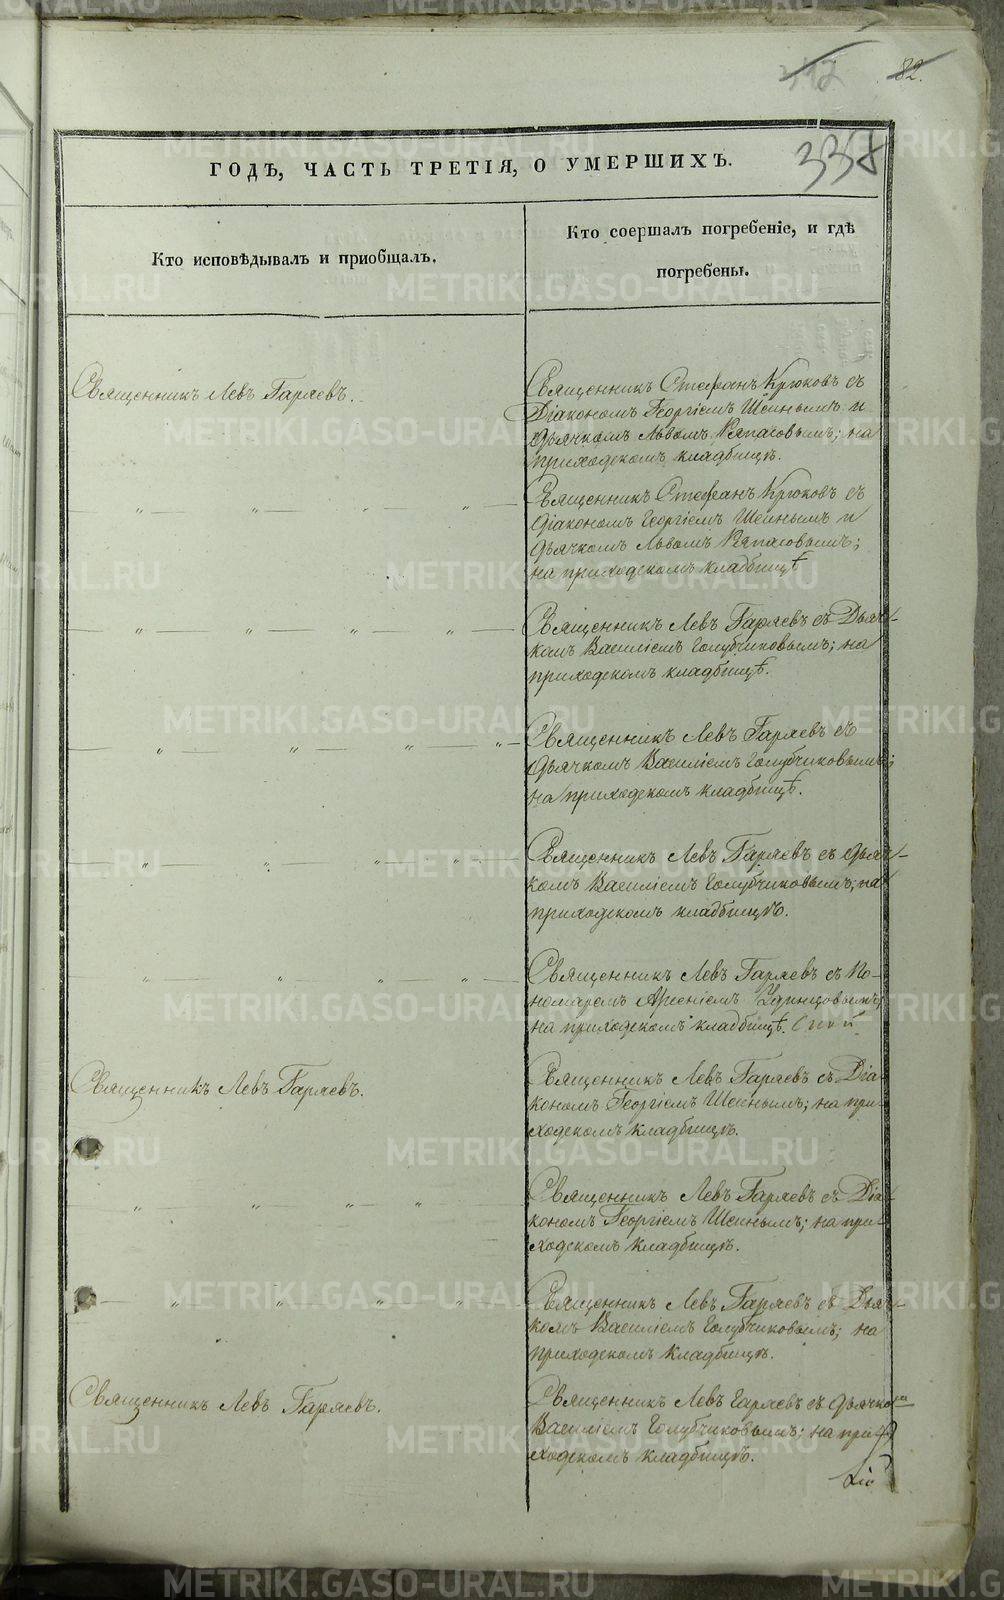 82.
338
ГОДѢ, ЧАСТЬ ТРЕТІЯ, О УМЕРШИХЪ.
Кто исповѣдывалъ и приобщалъ.
Кто соершалъ погребеніе, и гдѣ
погребены.
Священникъ Левъ Гаряевъ.
Священникъ Стефанъ Крюковъ съ
Діакономъ Георгіемъ Шеинымъ и
Дьячкомъ Львомъ Ряпасовымъ; на
приходскомъ кладбищѣ.
" " " "
Священникъ Стефанъ Крюковъ съ
Діакономъ Георгіемъ Шеинымъ и
Дьячкомъ Львомъ Ряпасовымъ;
на приходскомъ кладбищѣ
" " " "
Священникъ Левъ Гаряевъ съ Дьяч-
комъ Василіемъ Голубчиковымъ; на
приходскомъ кладбищѣ.
" " " "
Священникъ Левъ Гаряевъ съ
Дьячкомъ Василіемъ Голубчиковымъ;
на приходскомъ кладбищѣ.
" " " "
Священникъ Левъ Гаряевъ съ Дьяч-
комъ Василіемъ Голубчиковымъ; на
приходскомъ кладбищѣ.
" " " "
Священникъ Левъ Гаряевъ съ По-
номаремъ Арсеніемъ Удинцовымъ;
на приходскомъ кладбищѣ.
Священникъ Левъ Гаряевъ.
Священникъ Левъ Гаряевъ съ Діа-
кономъ Георгіемъ Шеинымъ; на при-
ходскомъ кладбищѣ.
" " " "
Священникъ Левъ Гаряевъ съ Діа-
кономъ Георгіемъ Шеинымъ; на при-
ходскомъ кладбищѣ.
" " " "
Священникъ Левъ Гаряевъ съ Дьяч-
комъ Василіемъ Голубчиковымъ; на
приходскомъ кладбищѣ.
Священникъ Левъ Гаряевъ.
Священникъ Левъ Гаряевъ съ Дьячкомъ
Василіемъ Голубчиковымъ; на при-
ходскомъ кладбищѣ.
METRIKI.GASO-URAL.RU